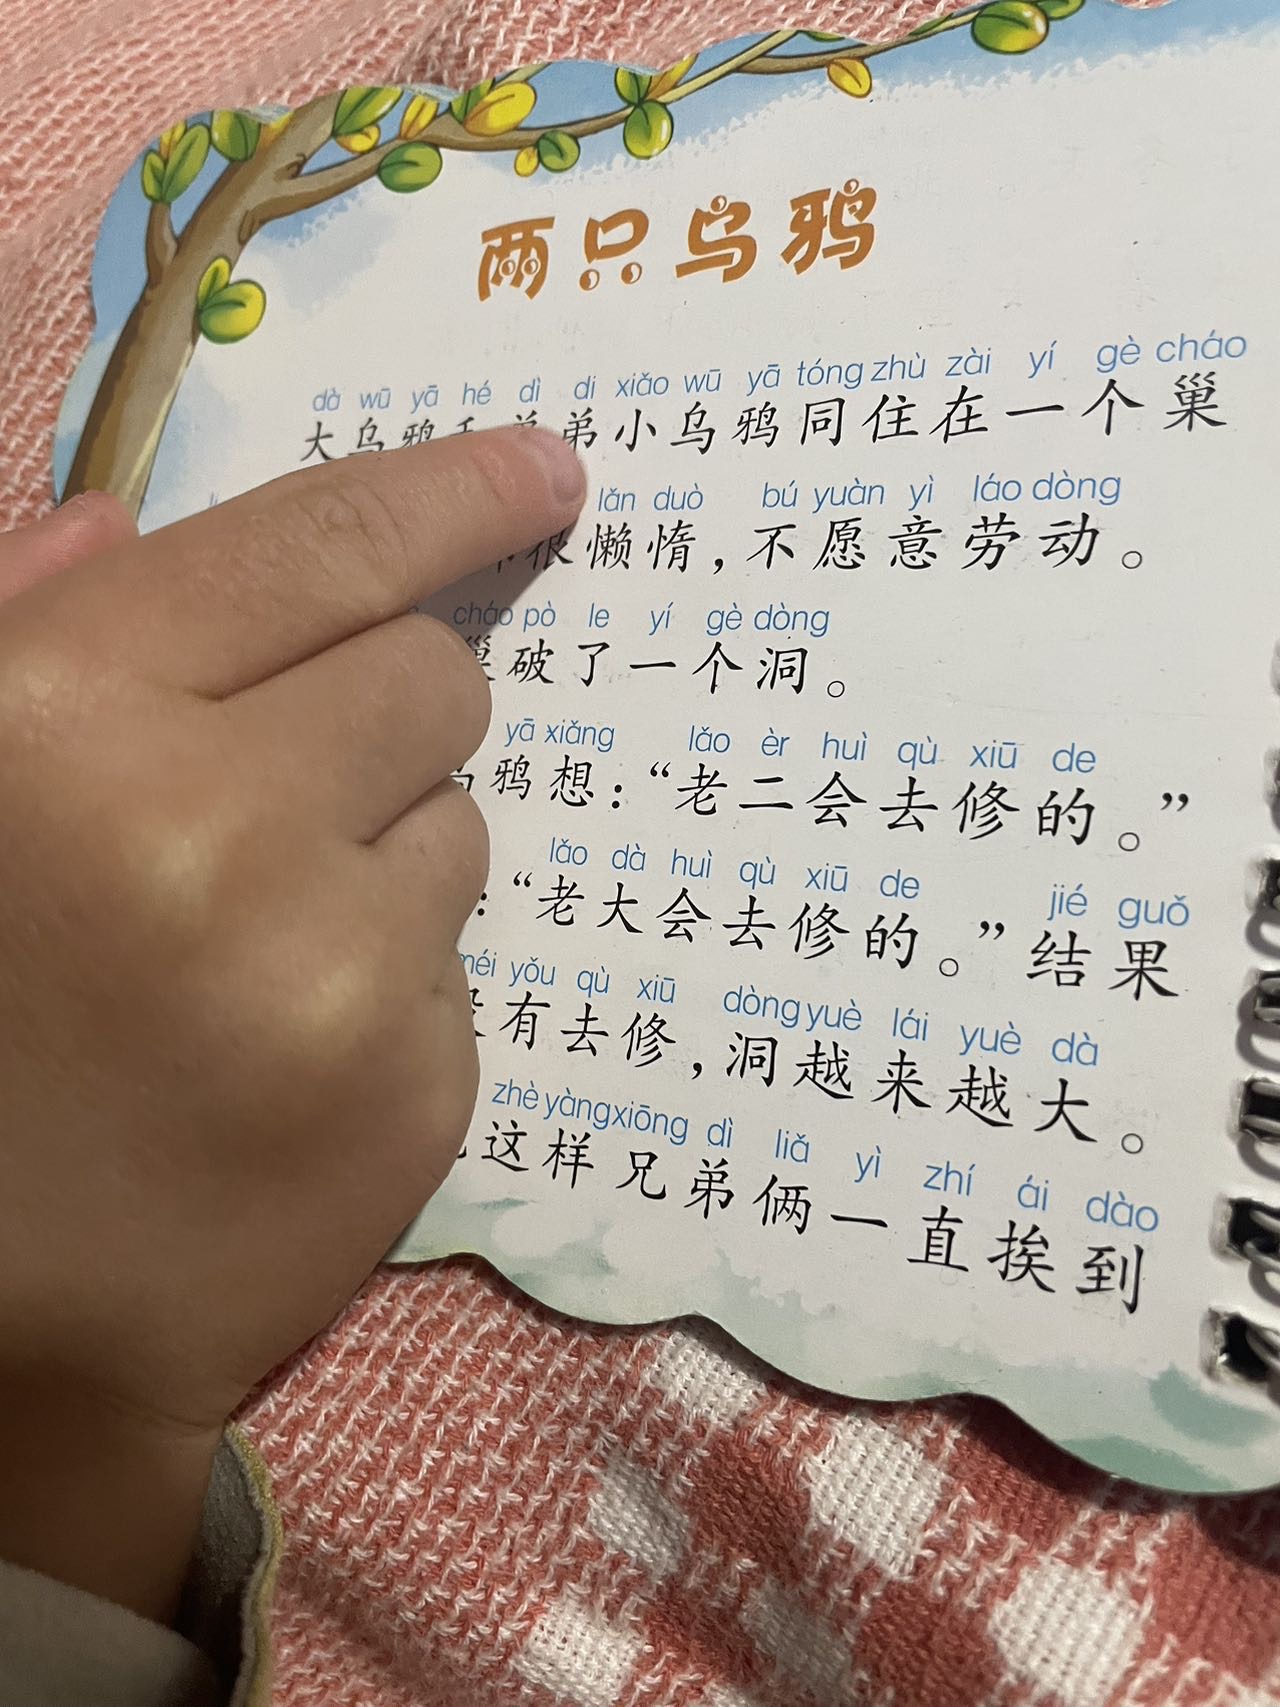 两只乌鸦
dà wū yā hé dì di xiǎo wū yā tóng zhù zài yí gè cháo
大乌鸦和弟弟小乌鸦同住在一个巢
lǎn duò bú yuàn yì láo dòng
很懒惰，不愿意劳动。
cháo pò le yí gè dòng
巢破了一个洞。
yā xiǎng lǎo èr huì qù xiū de
乌鸦想：“老二会去修的。”
lǎo dà huì qù xiū de jié guǒ
：“老大会去修的。”结果
méi yǒu qù xiū dòng yuè lái yuè dà
没有去修，洞越来越大。
zhè yàng xiōng dì liǎ yì zhí ái dào
这样兄弟俩一直挨到